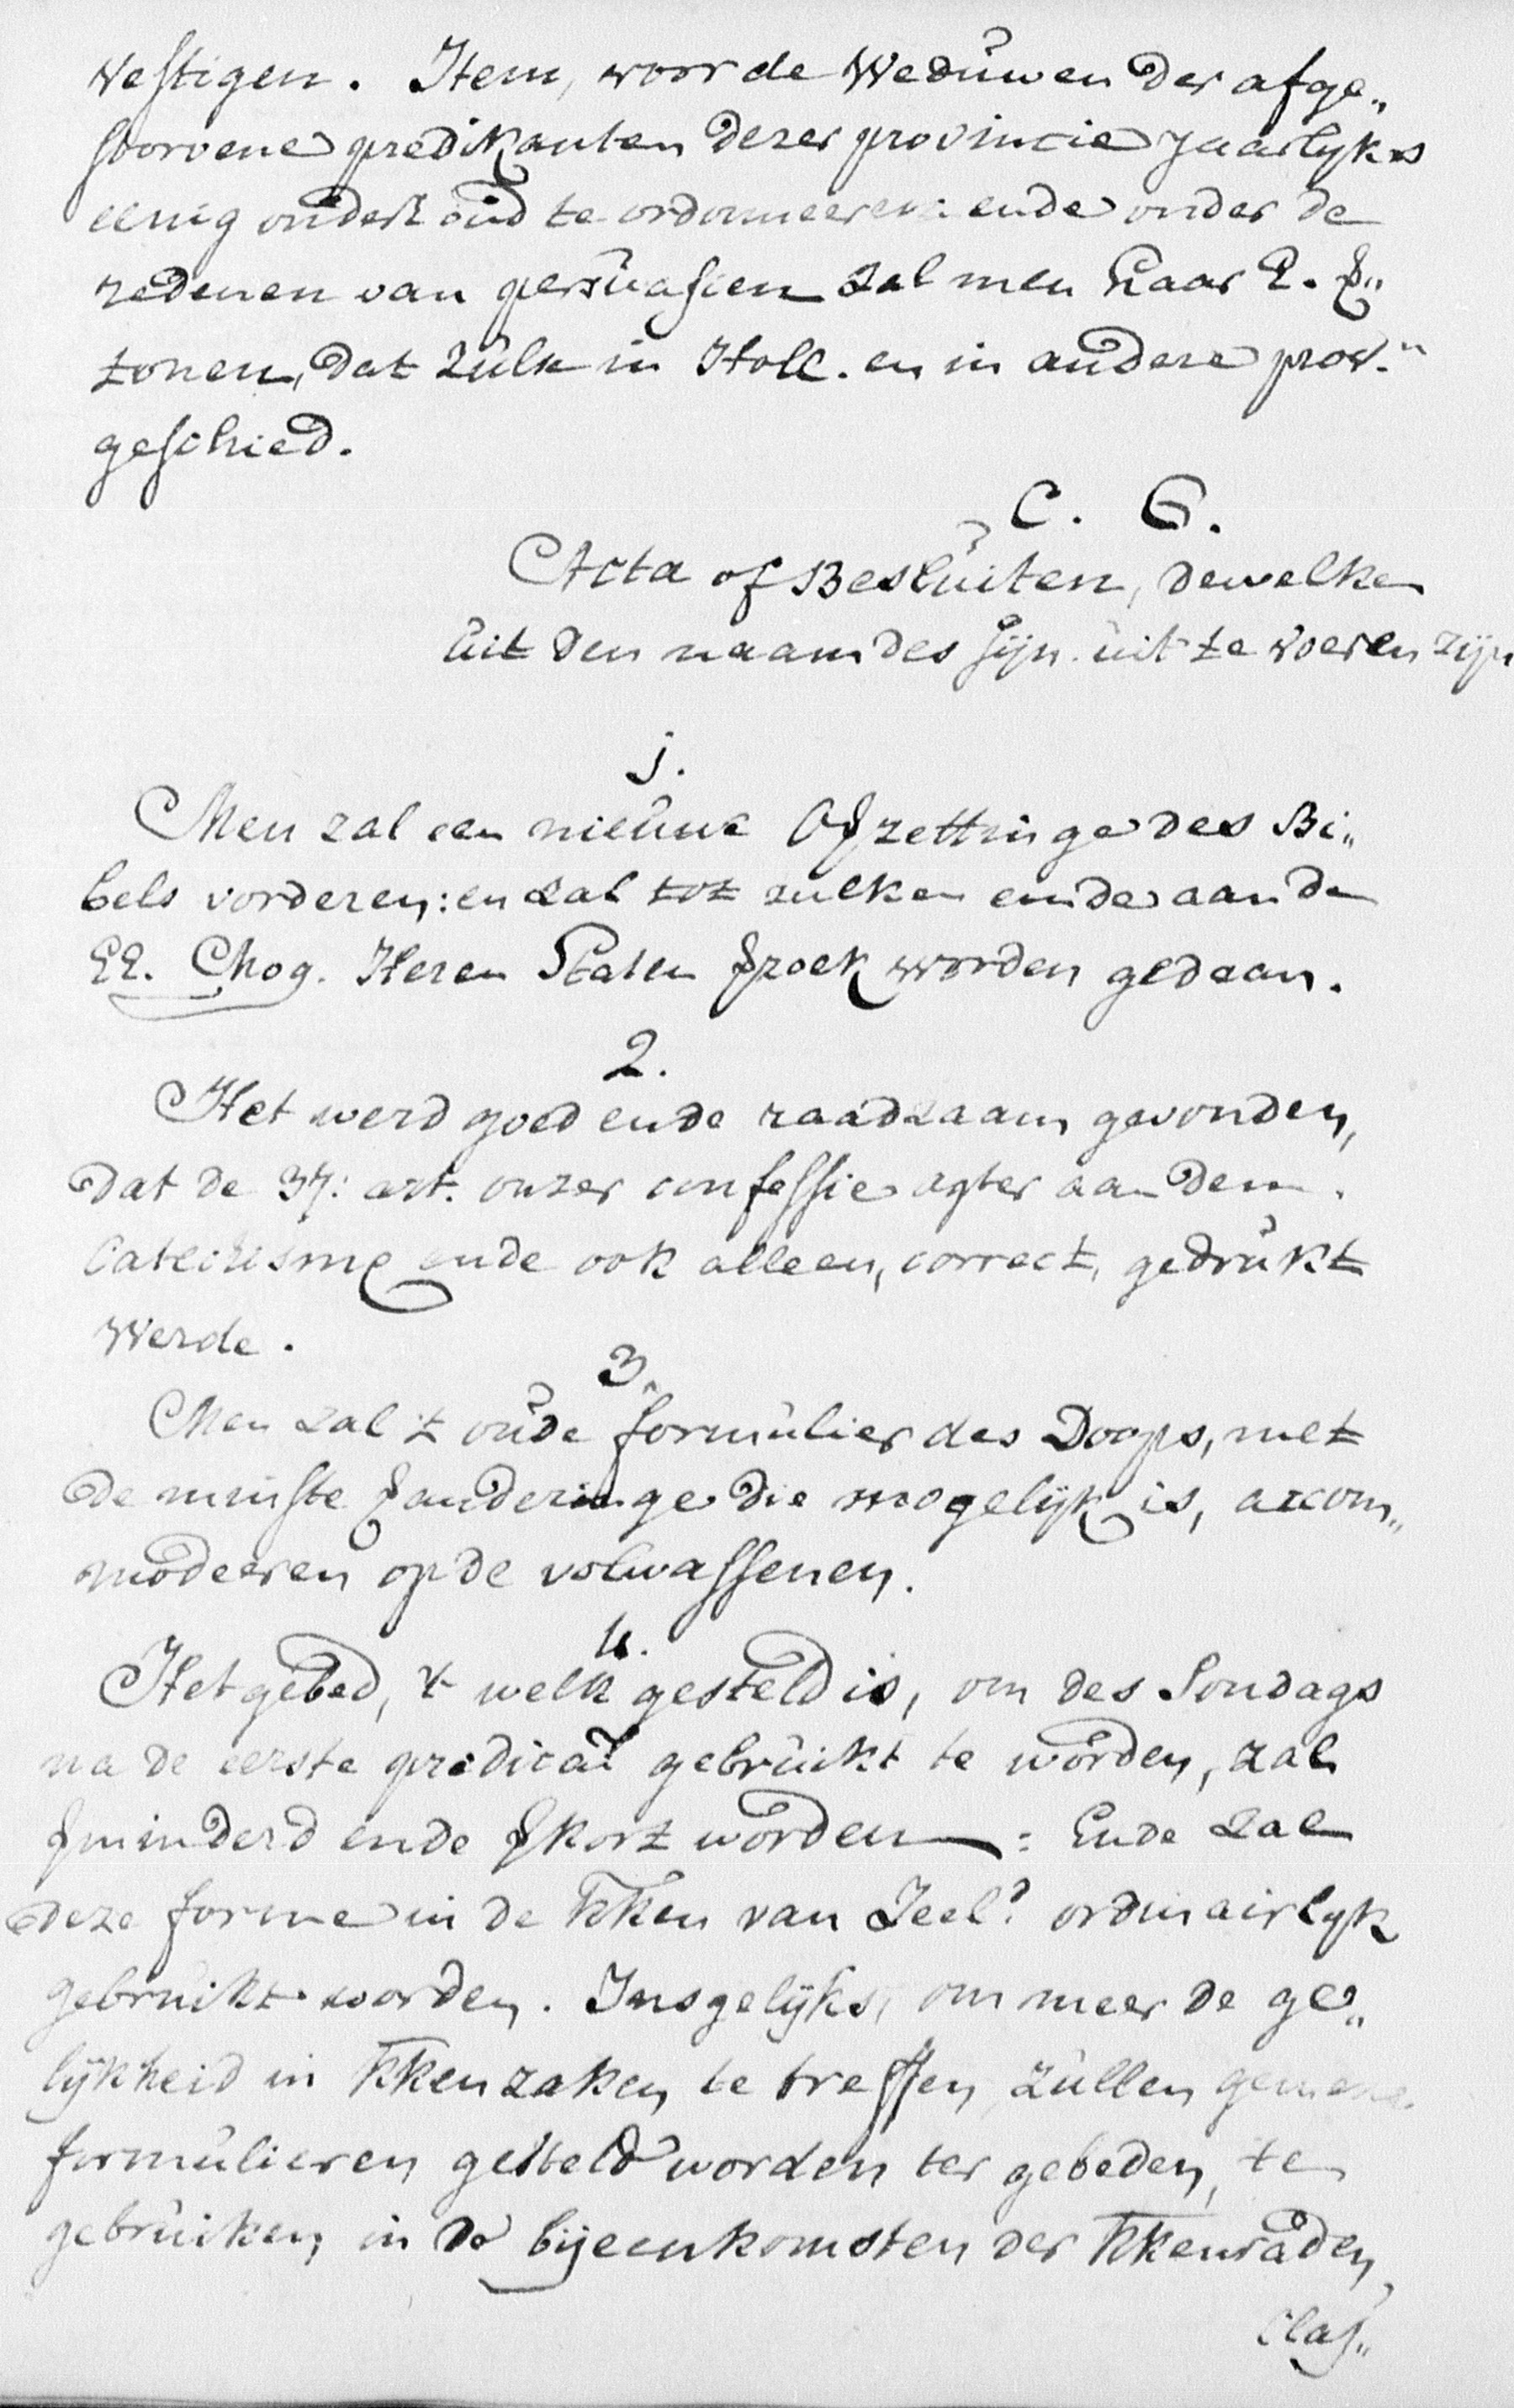 vestigen. Item, voor de Weduwen der afge„
storvene predikanten dezer provincie jaarlyks
eenig onderhoud te ordonneeren: ende onder de
redenen van persuasien zal men haar E. ꝟ„
tonen, dat zulk in Holl. en in andere prov.„
geschied.
C. G.
Acta of Besluiten, dewelke
uit den naam des Syn. uit te voeren zijn
j.
Men zal een nieuwe Ofzettinge des Bi„
bels vorderen: en zal tot zulken einde aan de
EE. Mog. Heren Staten ꝟzoek worden gedaan.
2.
Het werd goed ende raadzaam gevonden,
dat de 37: art. onzer confessie agter aan den
Catechisme ende ook alleen, correct, gedrukt
werde.
3.
Men zal 't oude formulier des Doops, met
de minste ꝟanderinge die mogelijk is, accom„
modeeren op de volwassenen.
4.
Het gebed, 't welk gesteld is, om des Sondags
na de eerste predicat gebruikt te worden, zal
ꝟminderd ende ꝟkort worden: Ende zal
deze forme in de kken van Zeel.d ordinairlyk
gebruikt worden. Insgelijks, om meer de ge„
lijkheid in kkenzaken te treffen, zullen gemene
formulieren gesteld worden ter gebeden, te
gebruiken, in de bijeenkomsten der kkenraden,
Clas„